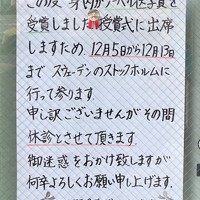 この度 身内がノーベル医学賞を
受賞しました。授賞式に出席
しますため、12月5日から12月13日
まで スウェーデンのストックホルムに
行って参ります。
申し訳ございませんが その間
休診とさせて頂きます
御迷惑をおかけ致しますが
何卒よろしくお願い申し上げます.